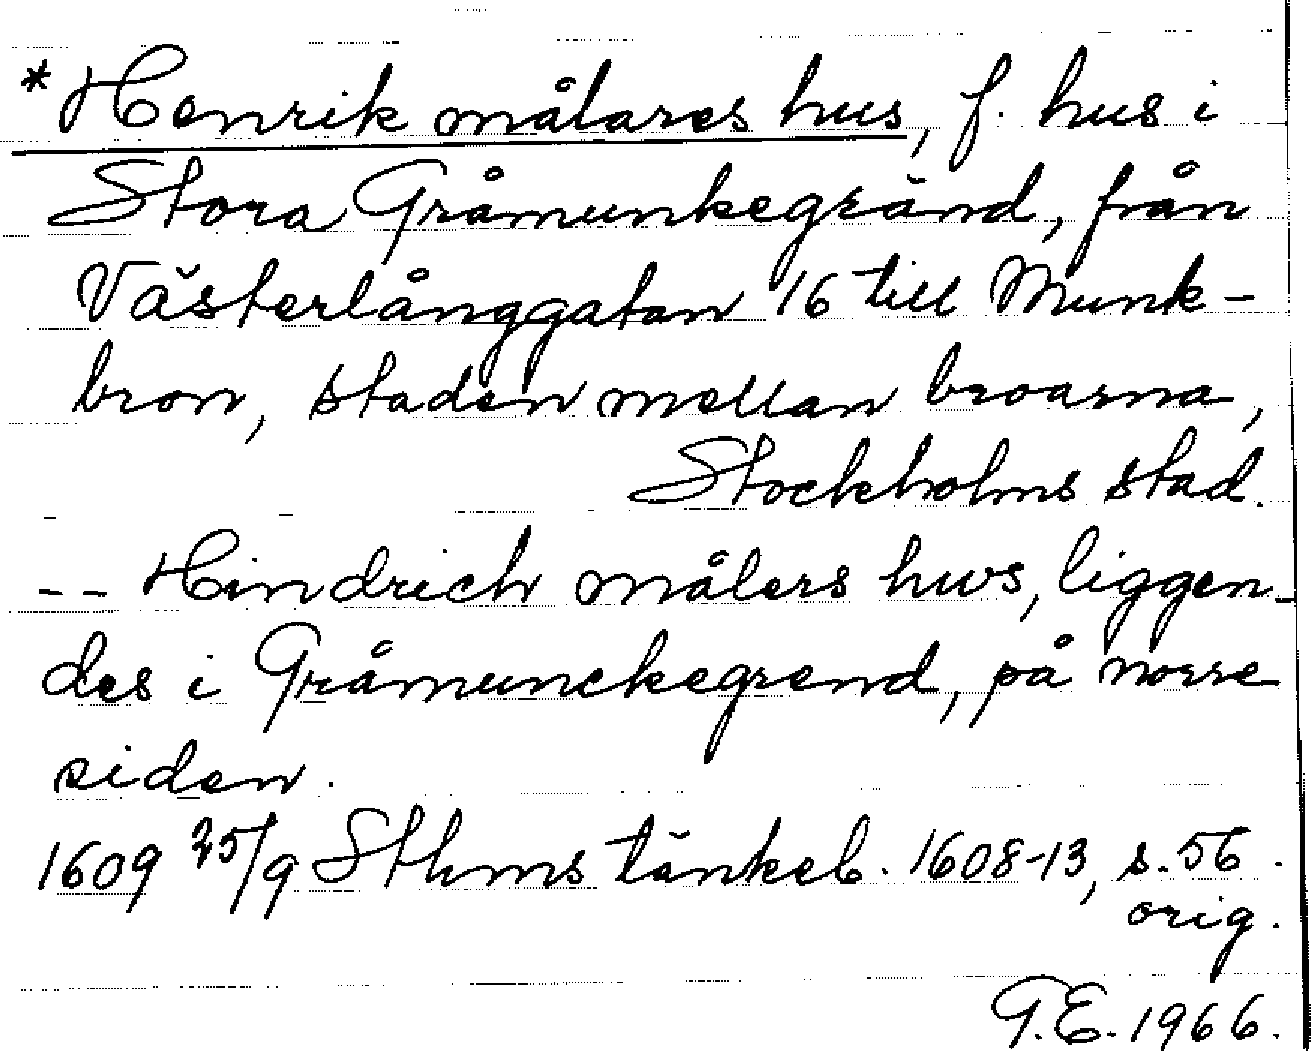 * Henrik målares hus, f. hus i
Stora Gråmunkegränd, från
Västerlånggatan 16 till Munk-
bron, staden mellan broarna,
Stockholms stad.
-- Hindrich målers hws, liggen-
des i Gråmunckegrend, på norre
siden.
1609 25/9 Sthms tänkeb. 1608-13, s. 56.
orig.
G.E. 1966.